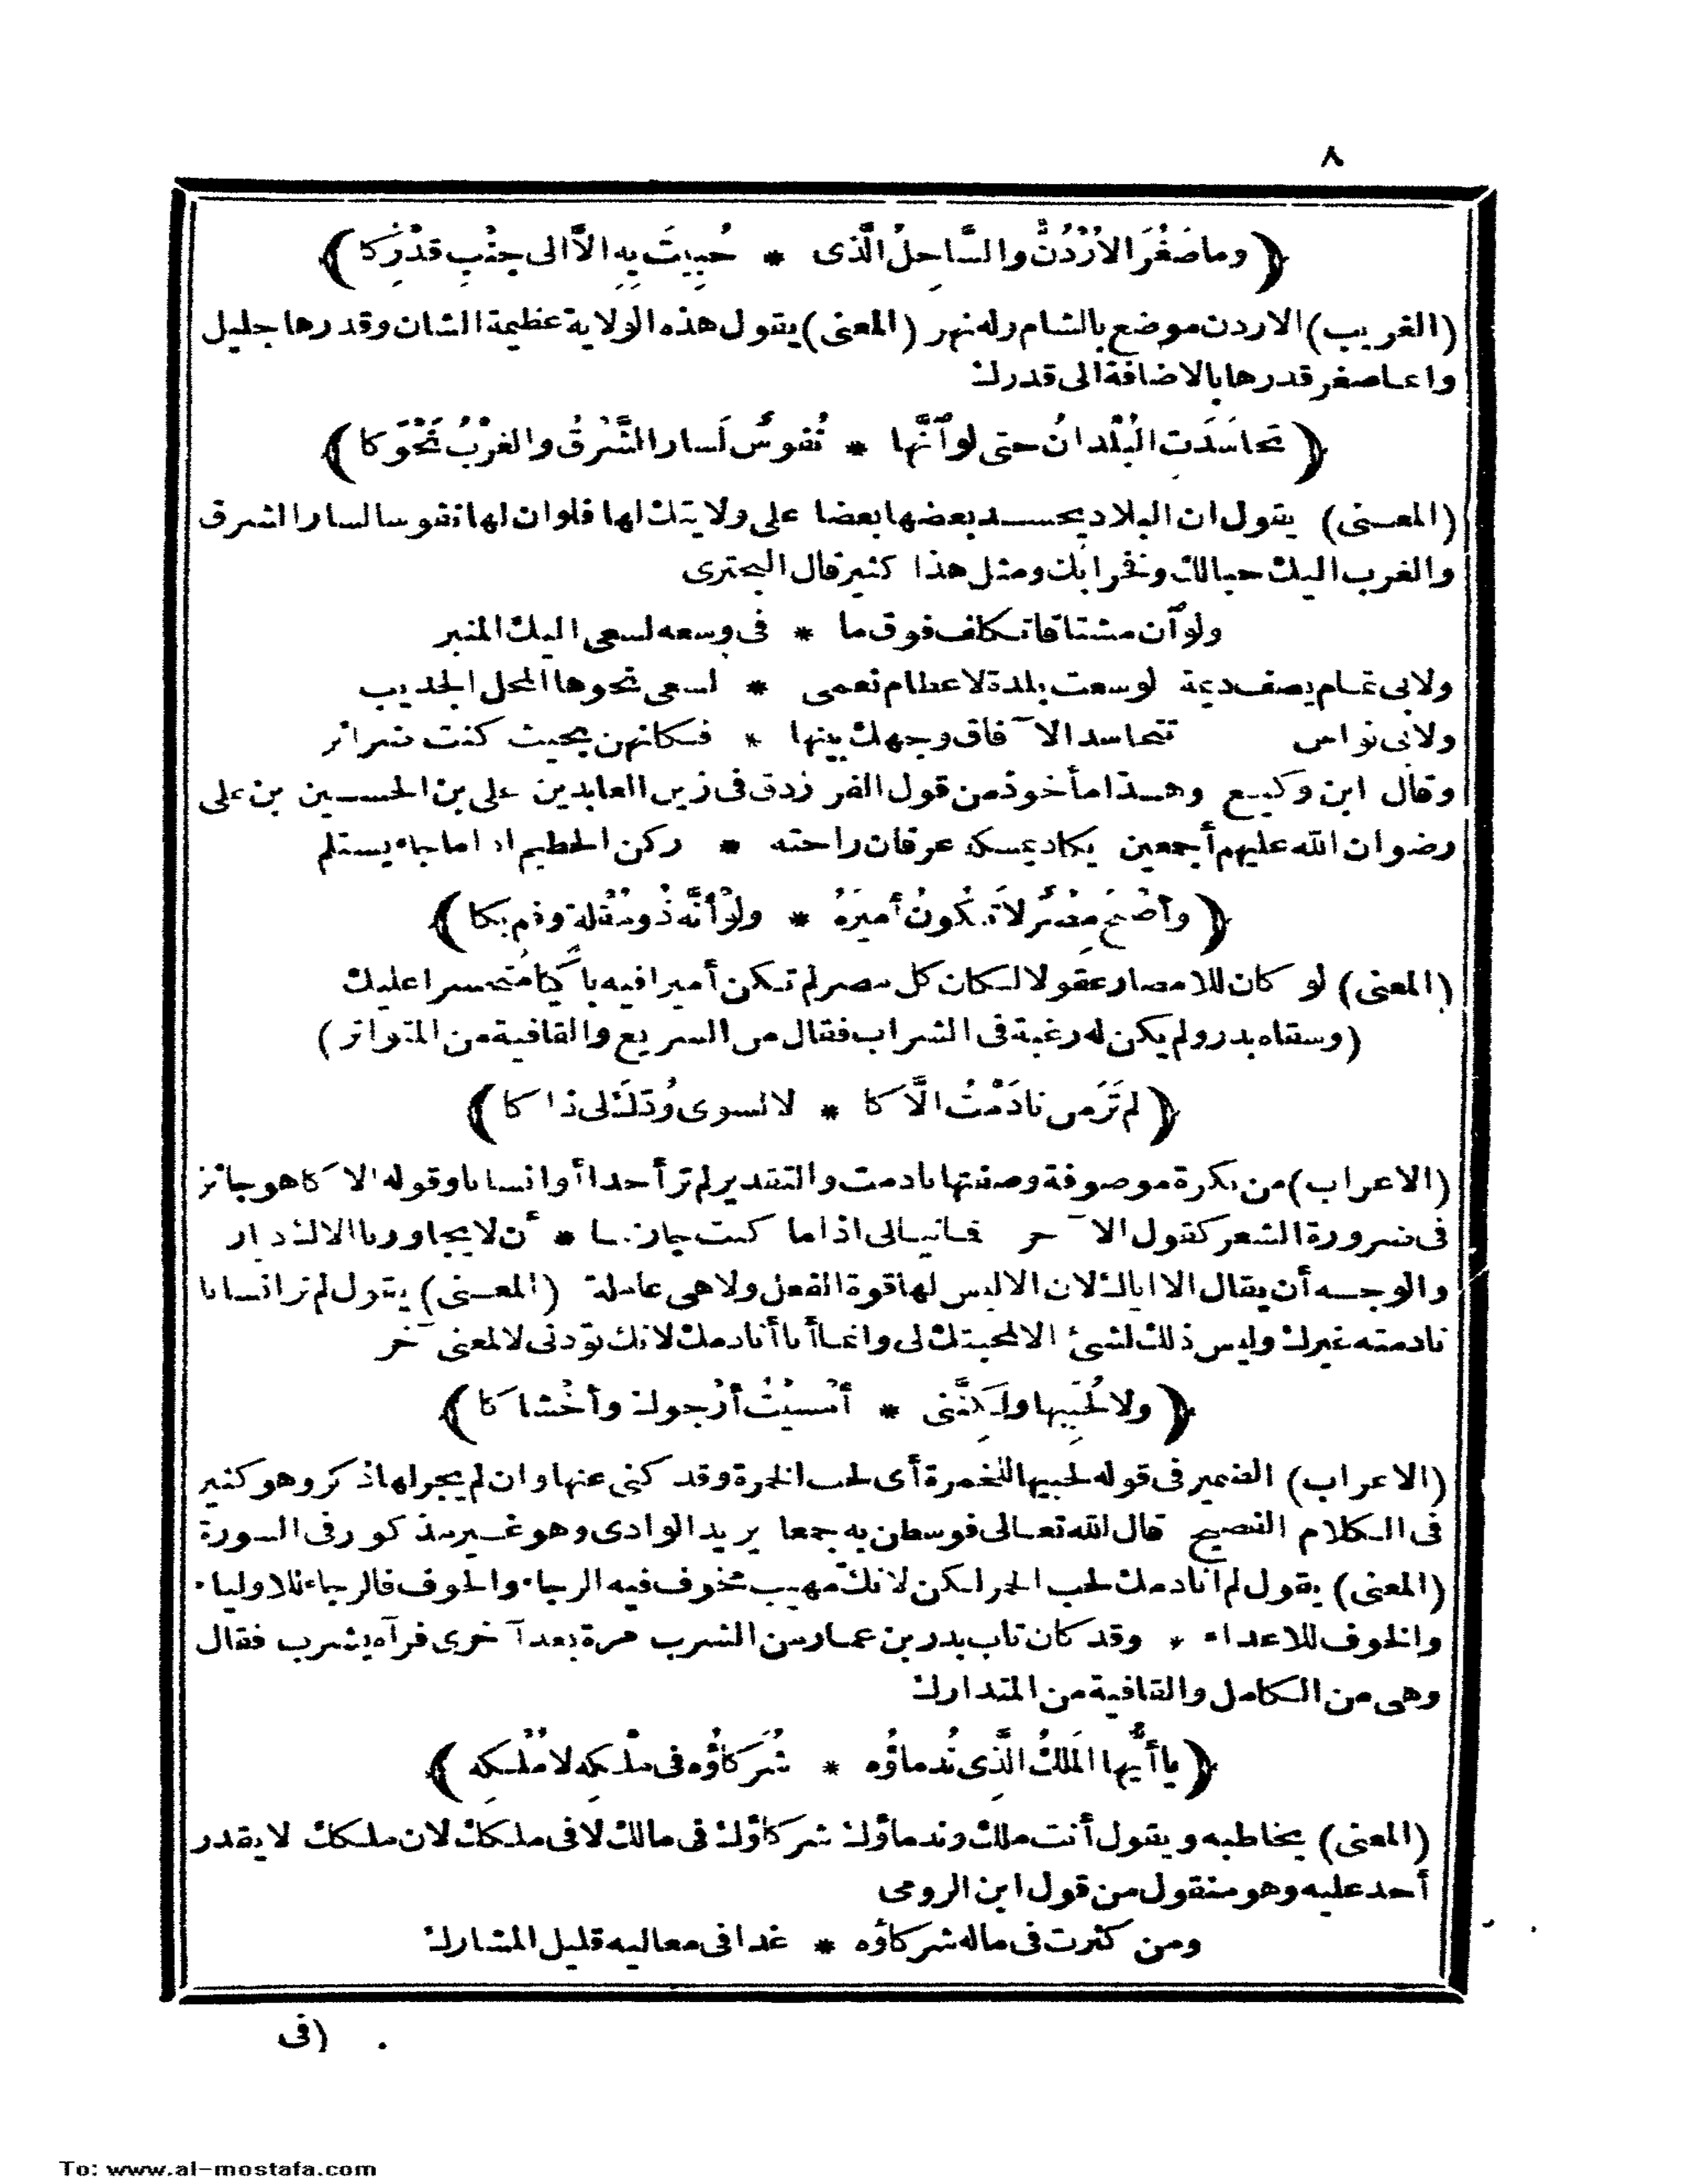 ٨
﴿وما صَغُرَ الاُرْدُنُّ والسَّاحِلُ الَّذى * حُبِيتَ بِهِ الاَّ الى جنْبِ قدْرِكا﴾
(الغريب) الاردن موضع بالشام وله نهر (المعنى) يقول هذه الولاية عظيمة الشان وقدرها جليل
وانما صغر قدرها بالاضافة الى قدرك
﴿تحاسَدَتِ البُلْدانُ حتى لو آنَّها * نُفوسٌ لَسار الشَّرقُ والغرْبُ نَحْوَكا﴾
(المعنى) يقول ان البلاد يحسد بعضها بعضا على ولايتك لها فلو ان لها نفوسا لسار الشرق
والغرب اليك حبا لك ونخرا بك ومثل هذا كثير قال البحترى
ولو آن مشتاقا تكلف فوق ما * فى وسعه لسعى اليك المنبر
ولابى تمام يصف ديمة لو سعت بلدة لاعظام نعمى * لسعى نحوها المحل الجديب
ولابى نواس تتحاسد الآفاق وجهك بينها * فكانهن بحيث كنت ضرائر
وقال ابن وكيع وهذا مأخوذ من قول الفرزدق فى زين العابدين على بن الحسين بن على
رضوان الله عليهم أجمعين يكاد يمسكه عرفان راحته * ركن الحطيم اذا ما جاء يستلم
﴿وأصْبَحَ مِصْرٌ لاتَكُونُ أميرَهُ * ولوْ أنَّه ذُو مُقْلة وفم بكا﴾
(المعنى) لو كان للامصار عقول لكان كل مصر لم تكن أميرا فيه باكيا متحسرا عليك
(وسقاه بدر ولم يكن له رغبة فى الشراب فقال من السريع والقافية من المتواتر)
﴿لم تَرَ من نادَمْتُ الاَّكا * لا لسوى وُدّكَ لى ذاكا﴾
(الاعراب) من نكرة موصوفة وصفتها نادمت والتقدير لم تر أحدا أو انسانا وقوله الاكا هو جائز
فى ضرورة الشعر كقول الآخر فما نبالى اذا ما كنت جارتنا * أن لا يجاورنا الاك ديار
والوجه أن يقال الا اياك لان الا ليس لها قوة الفعل ولا هى عاملة (المعنى) يقول لم تر انسانا
نادمته غيرك وليس ذلك لشئ الا لمحبتك لى وانما أنا أنادمك لانك تودنى لا لمعنى آخر
﴿ولا لحُبِّيها ولكِنَّنى * أمْسيْتُ أرْجوك وأخْشاكا﴾
(الاعراب) الضمير فى قوله لحبيها للخمرة أى لحب الخمرة وقد كنى عنها وان لم يجر لها ذكر وهو كثير
فى الكلام الفصيح قال الله تعالى فوسطن به جمعا يريد الوادى وهو غير مذكور فى السورة
(المعنى) يقول لم أنادمك لحب الخمر لكن لانك مهيب مخوف فيه الرجاء والخوف فالرجاء للاولياء
والخوف للاعداء * وقد كان تاب بدر بن عمار من الشرب مرة بعد آخرى فرآه يشرب فقال
وهى من الكامل والقافية من المتدارك
﴿يا أيُّها المَلكُ الَّذِى نُدماؤُه * شُرَكاؤُه فى مِلْكِهِ لا مُلْكِه﴾
(المعنى) يخاطبه ويقول أنت ملك وندماؤك شركاؤك فى مالك لا فى ملكك لان ملكك لا يقدر
أحد عليه وهو منقول من قول ابن الرومى
ومن كثرت فى ماله شركاؤه * غدا فى معاليه قليل المشارك
(فى
To: www.al-mostafa.com